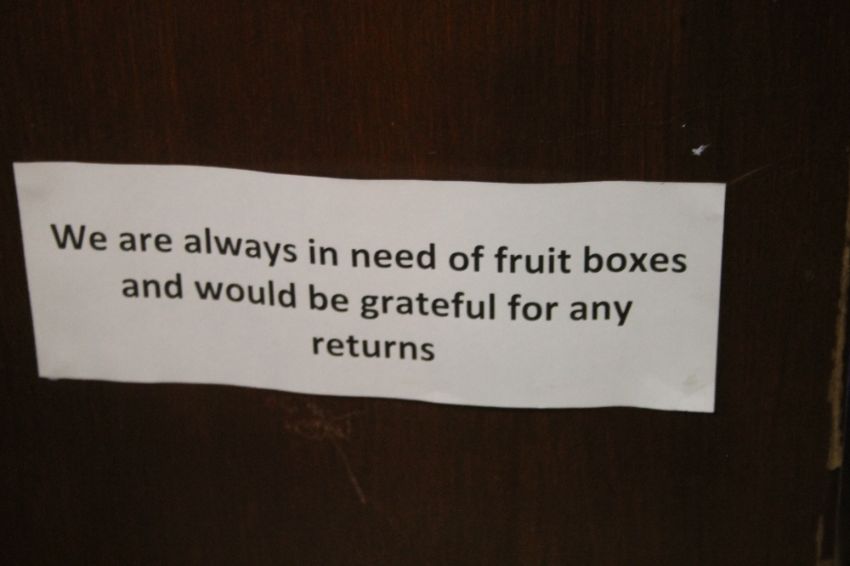 We are always in need of fruit boxes
and would be grateful for any
returns